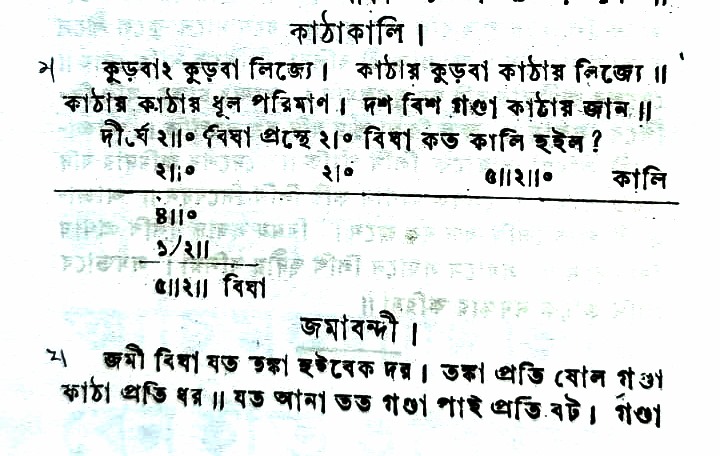 কাঠাকালি।
২। কুড়বা২ কুড়বা লিজ্যে। কাঠায় কুড়বা কাঠায় লিজ্যে॥
কাঠায় কাঠায় ধূল পরিমাণ। দশ বিশ গণ্ডা কাঠায় জান॥
দীর্ঘে ২॥০ বিঘা প্রস্থে ২।০ বিঘা কত কালি হইল?
২॥০ ২।০ ৫॥২॥০ কালি
৪॥০
১/২॥
৫॥২॥ বিঘা
জমাবন্দী।
২। জমী বিঘা যত তঙ্কা হইবেক দর। তঙ্কা প্রতি ষোল গণ্ডা
কাঠা প্রতি ধর॥ যত আনা তত গণ্ডা পাই প্রতি বট। গণ্ডা